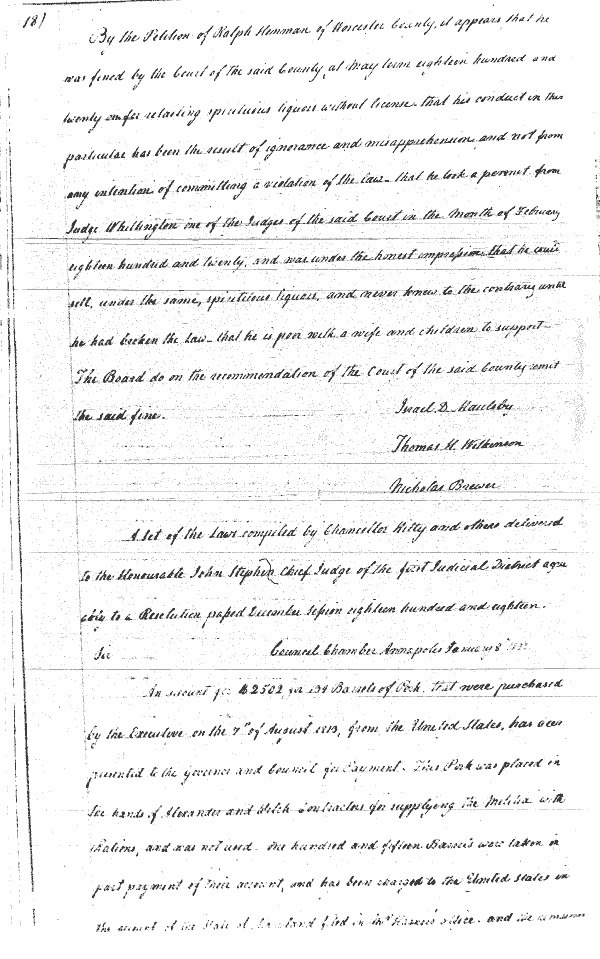 181
By the Petition of Ralph Henman of Worcester County, it appears that he
was fined by the Court of the said County, at May term eighteen hundred and
twenty one for retailing spirituous liquors without license. that his conduct in this
particular has been the result of ignorance and misapprehension and not from
any intention of committing a violation of the law_ that he took a permit from
Judge Whittington one of the Judges of the said Court in the Month of February
eighteen hundred and twenty, and was under the honest impression that he could
sell, under the same, spirituous liquors, and never knew to the contrary until
he had broken the Law_ that he is poor with a wife and children to support_
The Board do on the recommendation of the Court of the said County remit
the said fine.
Israel D. Maulsby
Thomas H. Wilkinson
Nicholas Brewer
A set of the Laws compiled by Chancellor Kilty and others delivered
to the Honourable John Stephen Chief Judge of the first Judicial District agre
ably to a Resolution passed December Session eighteen hundred and eighteen.
Sir Council Chamber Annapolis January 8th
An account for $2502, for 139 Barrels of Pork that were purchased
by the Executive on the 7th of August 1813, from the United States, has been
presented to the governor and Council for Payment. This Pork was placed in
the hands of Alexander and Welch Contractors for supplying the Militia with
Rations, and was not used. One hundred and fifteen Barrels were taken in
part payment of their account, and has been charged to the United States in
the account of the State of Maryland filed in Mr office. and the remainder